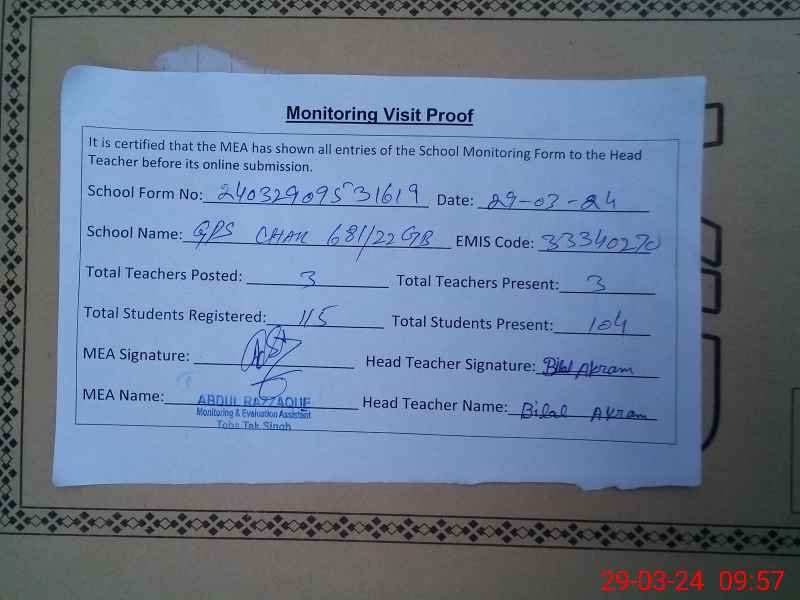 Monitoring Visit Proof
It is certified that the MEA has shown all entries of the School Monitoring Form to the Head
Teacher before its online submission.
School Form No: 24032909531619 Date: 29-03-24
School Name: GPS CHAK 681/22 GB EMIS Code: 33340270
Total Teachers Posted: 3 Total Teachers Present: 3
Total Students Registered: 115 Total Students Present: 104
MEA Signature: Head Teacher Signature: Bilal Akram
MEA Name: ABDUL RAZZAQUE Head Teacher Name: Bilal Akram
Monitoring & Evaluation Assistant
Toba Tek Singh
29-03-24 09:57